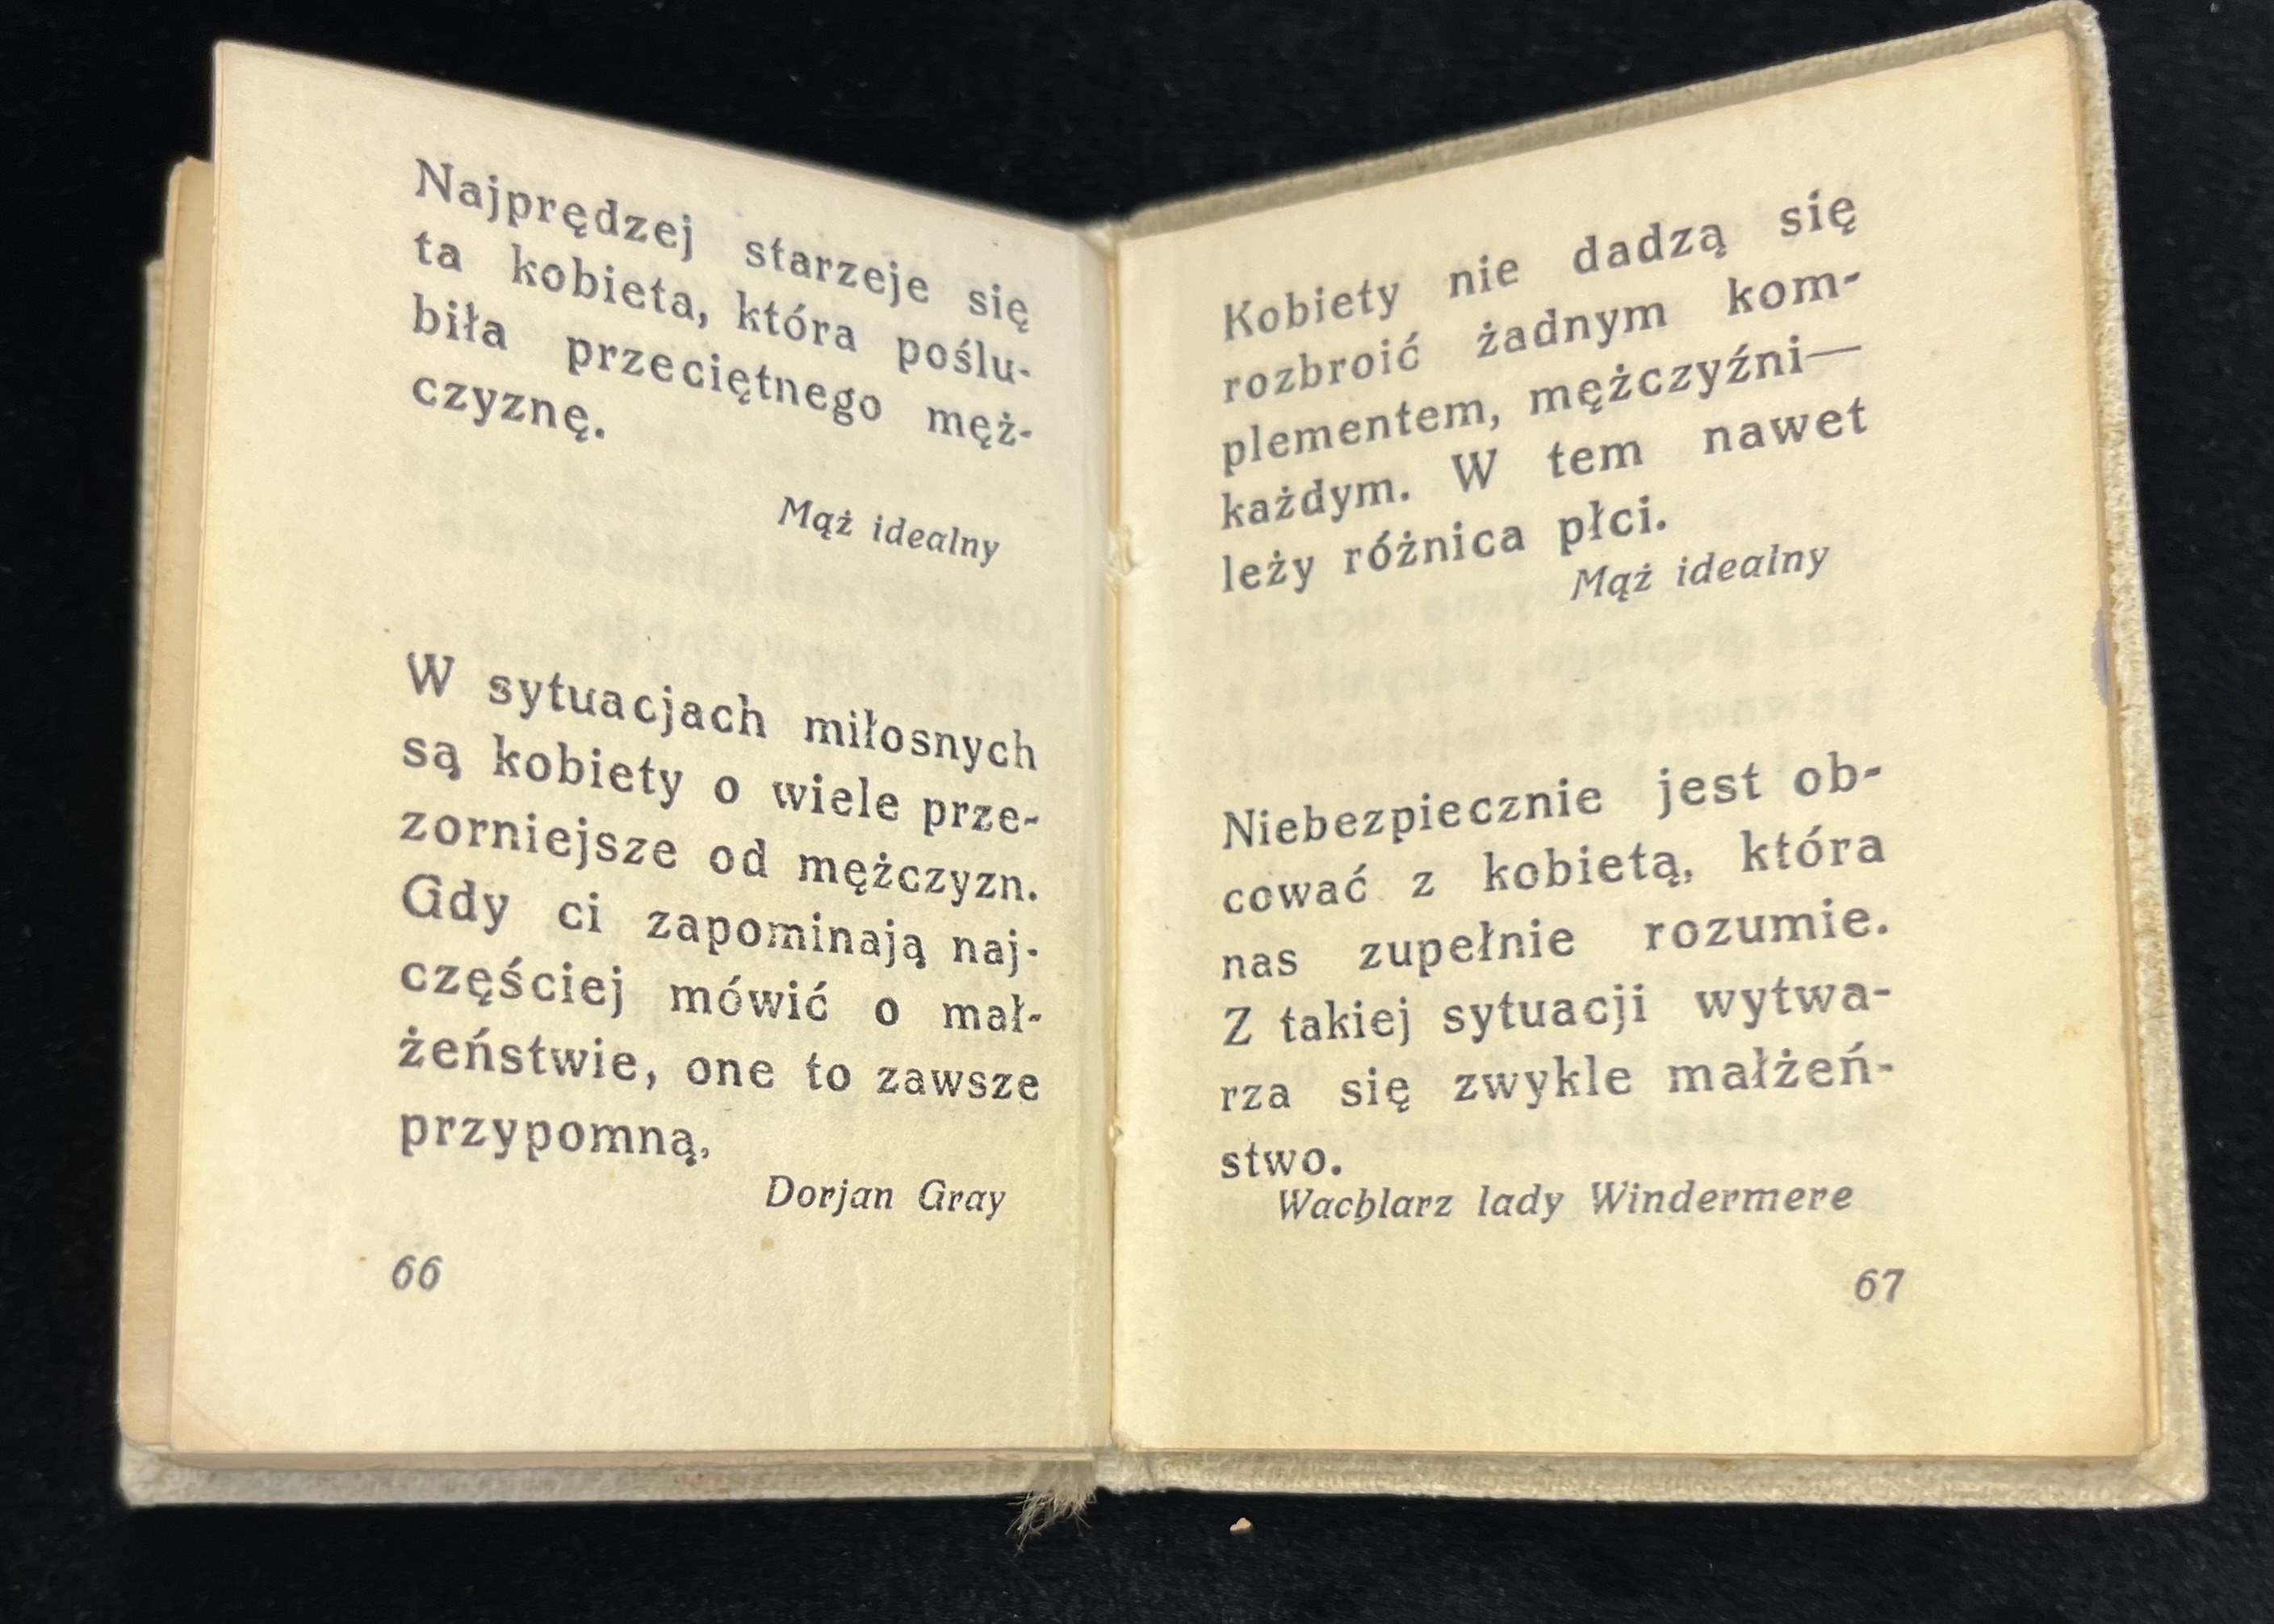 Najprędzej starzeje się
ta kobieta, która poślu-
biła przeciętnego męż-
czyznę.
Mąż idealny
W sytuacjach miłosnych
są kobiety o wiele prze-
zorniejsze od mężczyzn.
Gdy ci zapominają naj-
częściej mówić o mał-
żeństwie, one to zawsze
przypomną.
Dorjan Gray
66
Kobiety nie dadzą się
rozbroić żadnym kom-
plementem, mężczyźni—
każdym. W tem nawet
leży różnica płci.
Mąż idealny
Niebezpiecznie jest ob-
cować z kobietą, która
nas zupełnie rozumie.
Z takiej sytuacji wytwa-
rza się zwykle małżeń-
stwo.
Wachlarz lady Windermere
67